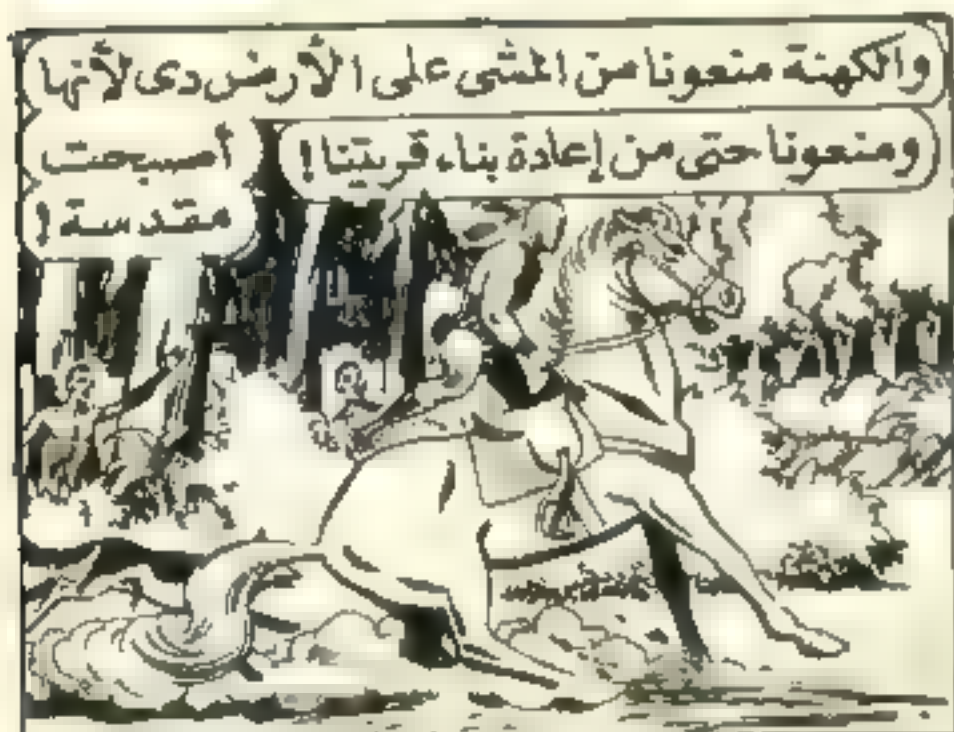 والكهنة منعونا من المشى على الأرض دى لأنها
أصبحت
مقدسة !
ومنعونا حتى من إعادة بناء قريتنا !